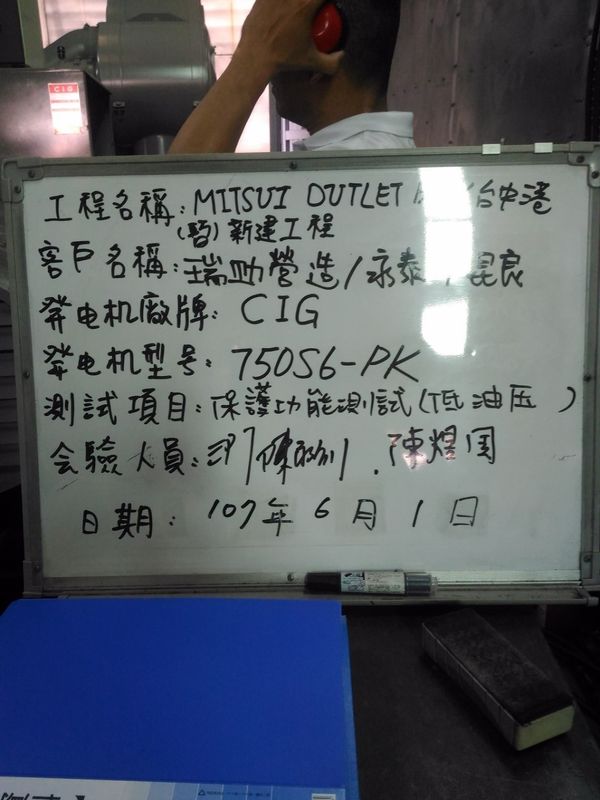 CIG
工程名稱: MITSUI OUTLET 台中港
(暫)新建工程
客戶名稱:瑞助營造/永泰 昆良
發电机廠牌: CIG
發电机型号: 750S6-PK
測試項目:保護功能測試(低油压)
会驗人員: 陳煜周
日期: 107年6月1日